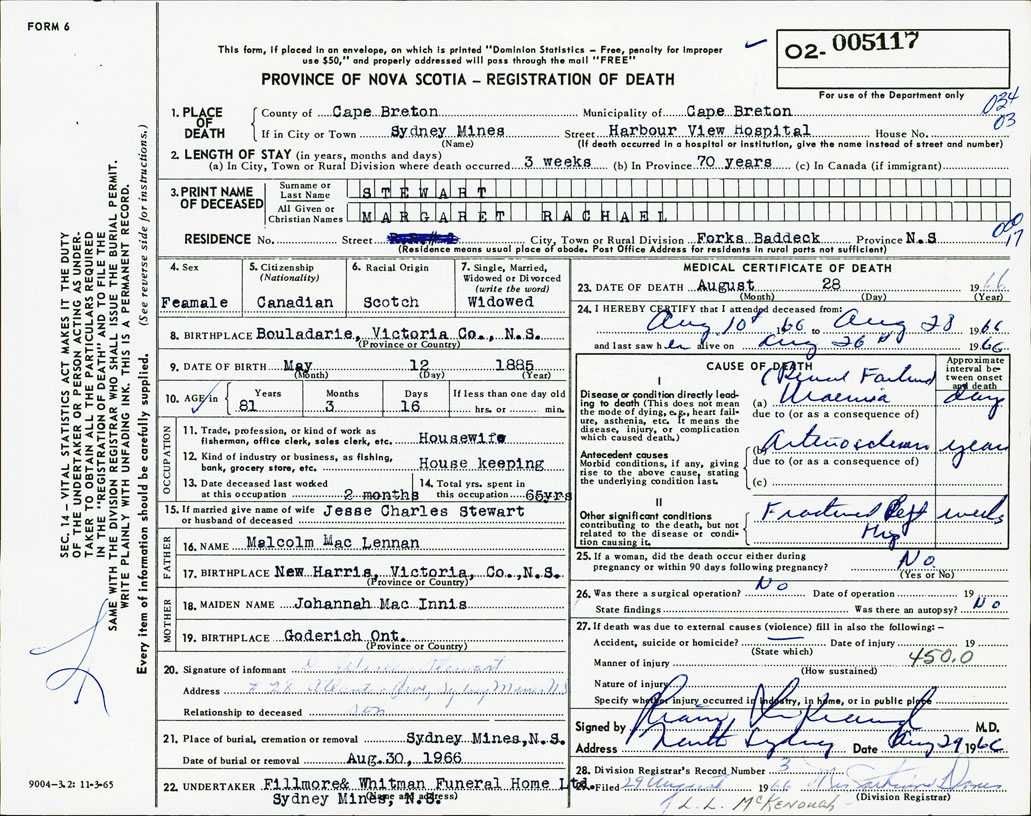 FORM 6
This form, if placed in an envelope, on which is printed "Dominion Statistics – Free, penalty for improper
use $50," and properly addressed will pass through the mail "FREE"
PROVINCE OF NOVA SCOTIA – REGISTRATION OF DEATH
02- 005117
For use of the Department only
034
03
1. PLACE OF DEATH
County of Cape Breton Municipality of Cape Breton
If in City or Town Sydney Mines Street Harbour View Hospital House No.
(Name) (If death occurred in a hospital or institution, give the name instead of street and number)
2. LENGTH OF STAY (in years, months and days)
(a) In City, Town or Rural Division where death occurred 3 weeks (b) In Province 70 years (c) In Canada (if immigrant)
3. PRINT NAME OF DECEASED
Surname or Last Name STEWART
All Given or Christian Names MARGARET RACHAEL
000
17
RESIDENCE No. Street City, Town or Rural Division Forks Baddeck Province N.S
(Residence means usual place of abode. Post Office Address for residents in rural parts not sufficient)
4. Sex
Feamale
5. Citizenship
(Nationality)
Canadian
6. Racial Origin
Scotch
7. Single, Married,
Widowed or Divorced
(write the word)
Widowed
8. BIRTHPLACE Bouladarie, Victoria Co., N.S.
(Province or Country)
9. DATE OF BIRTH May 12 1885
(Month) (Day) (Year)
10. AGE in
Years 81
Months 3
Days 16
If less than one day old
hrs. or min.
OCCUPATION
11. Trade, profession, or kind of work as
fisherman, office clerk, sales clerk, etc. Housewife
12. Kind of industry or business, as fishing,
bank, grocery store, etc. House keeping
13. Date deceased last worked
at this occupation 2 months
14. Total yrs. spent in
this occupation 65yrs
15. If married give name of wife
or husband of deceased Jesse Charles Stewart
FATHER
16. NAME Malcolm Mac Lennan
17. BIRTHPLACE New Harris, Victoria, Co.,N.S.
(Province or Country)
MOTHER
18. MAIDEN NAME Johannah Mac Innis
19. BIRTHPLACE Goderich Ont.
(Province or Country)
20. Signature of informant Stewart
Address Sydney Mines N.S
Relationship to deceased son
21. Place of burial, cremation or removal Sydney Mines,N.S.
Date of burial or removal Aug.30, 1966
22. UNDERTAKER Fillmore& Whitman Funeral Home Ltd.
Sydney Mines, N.S.
(Name and address)
MEDICAL CERTIFICATE OF DEATH
23. DATE OF DEATH August 28 1966
(Month) (Day) (Year)
24. I HEREBY CERTIFY that I attended deceased from:
Aug 10th 1966 to Aug 28 1966
and last saw her alive on Aug 26th 1966
CAUSE OF DEATH
Approximate
interval be-
tween onset
and death
I
Disease or condition directly lead-
ing to death (This does not mean
the mode of dying, e.g., heart fail-
ure, asthenia, etc. It means the
disease, injury, or complication
which caused death.)
(Renal Failure
(a) Uraemia days
due to (or as a consequence of)
Antecedent causes
Morbid conditions, if any, giving
rise to the above cause, stating
the underlying condition last.
(b) years
due to (or as a consequence of)
(c)
II
Other significant conditions
contributing to the death, but not
related to the disease or condi-
tion causing it.
Fractured Left weeks
Hip
25. If a woman, did the death occur either during
pregnancy or within 90 days following pregnancy? No
(Yes or No)
26. Was there a surgical operation? No Date of operation 19
State findings Was there an autopsy? No
27. If death was due to external causes (violence) fill in also the following: –
Accident, suicide or homicide? Date of injury 19
(State which)
450.0
Manner of injury
(How sustained)
Nature of injury
Specify whether injury occurred in industry, in home, or in public place
Signed by M.D.
Address North Sydney Date Aug 29 1966
28. Division Registrar's Record Number 3
29. Filed 29 August 1966
(Division Registrar)
L.L. McKENOUGH
SEC. 14 – VITAL STATISTICS ACT MAKES IT THE DUTY
OF THE UNDERTAKER OR PERSON ACTING AS UNDER-
TAKER TO OBTAIN ALL THE PARTICULARS REQUIRED
IN THE "REGISTRATION OF DEATH" AND TO FILE THE
SAME WITH THE DIVISION REGISTRAR WHO SHALL ISSUE THE BURIAL PERMIT.
WRITE PLAINLY WITH UNFADING INK. THIS IS A PERMANENT RECORD.
Every item of information should be carefully supplied. (See reverse side for instructions.)
9004-3.2: 11-3-65